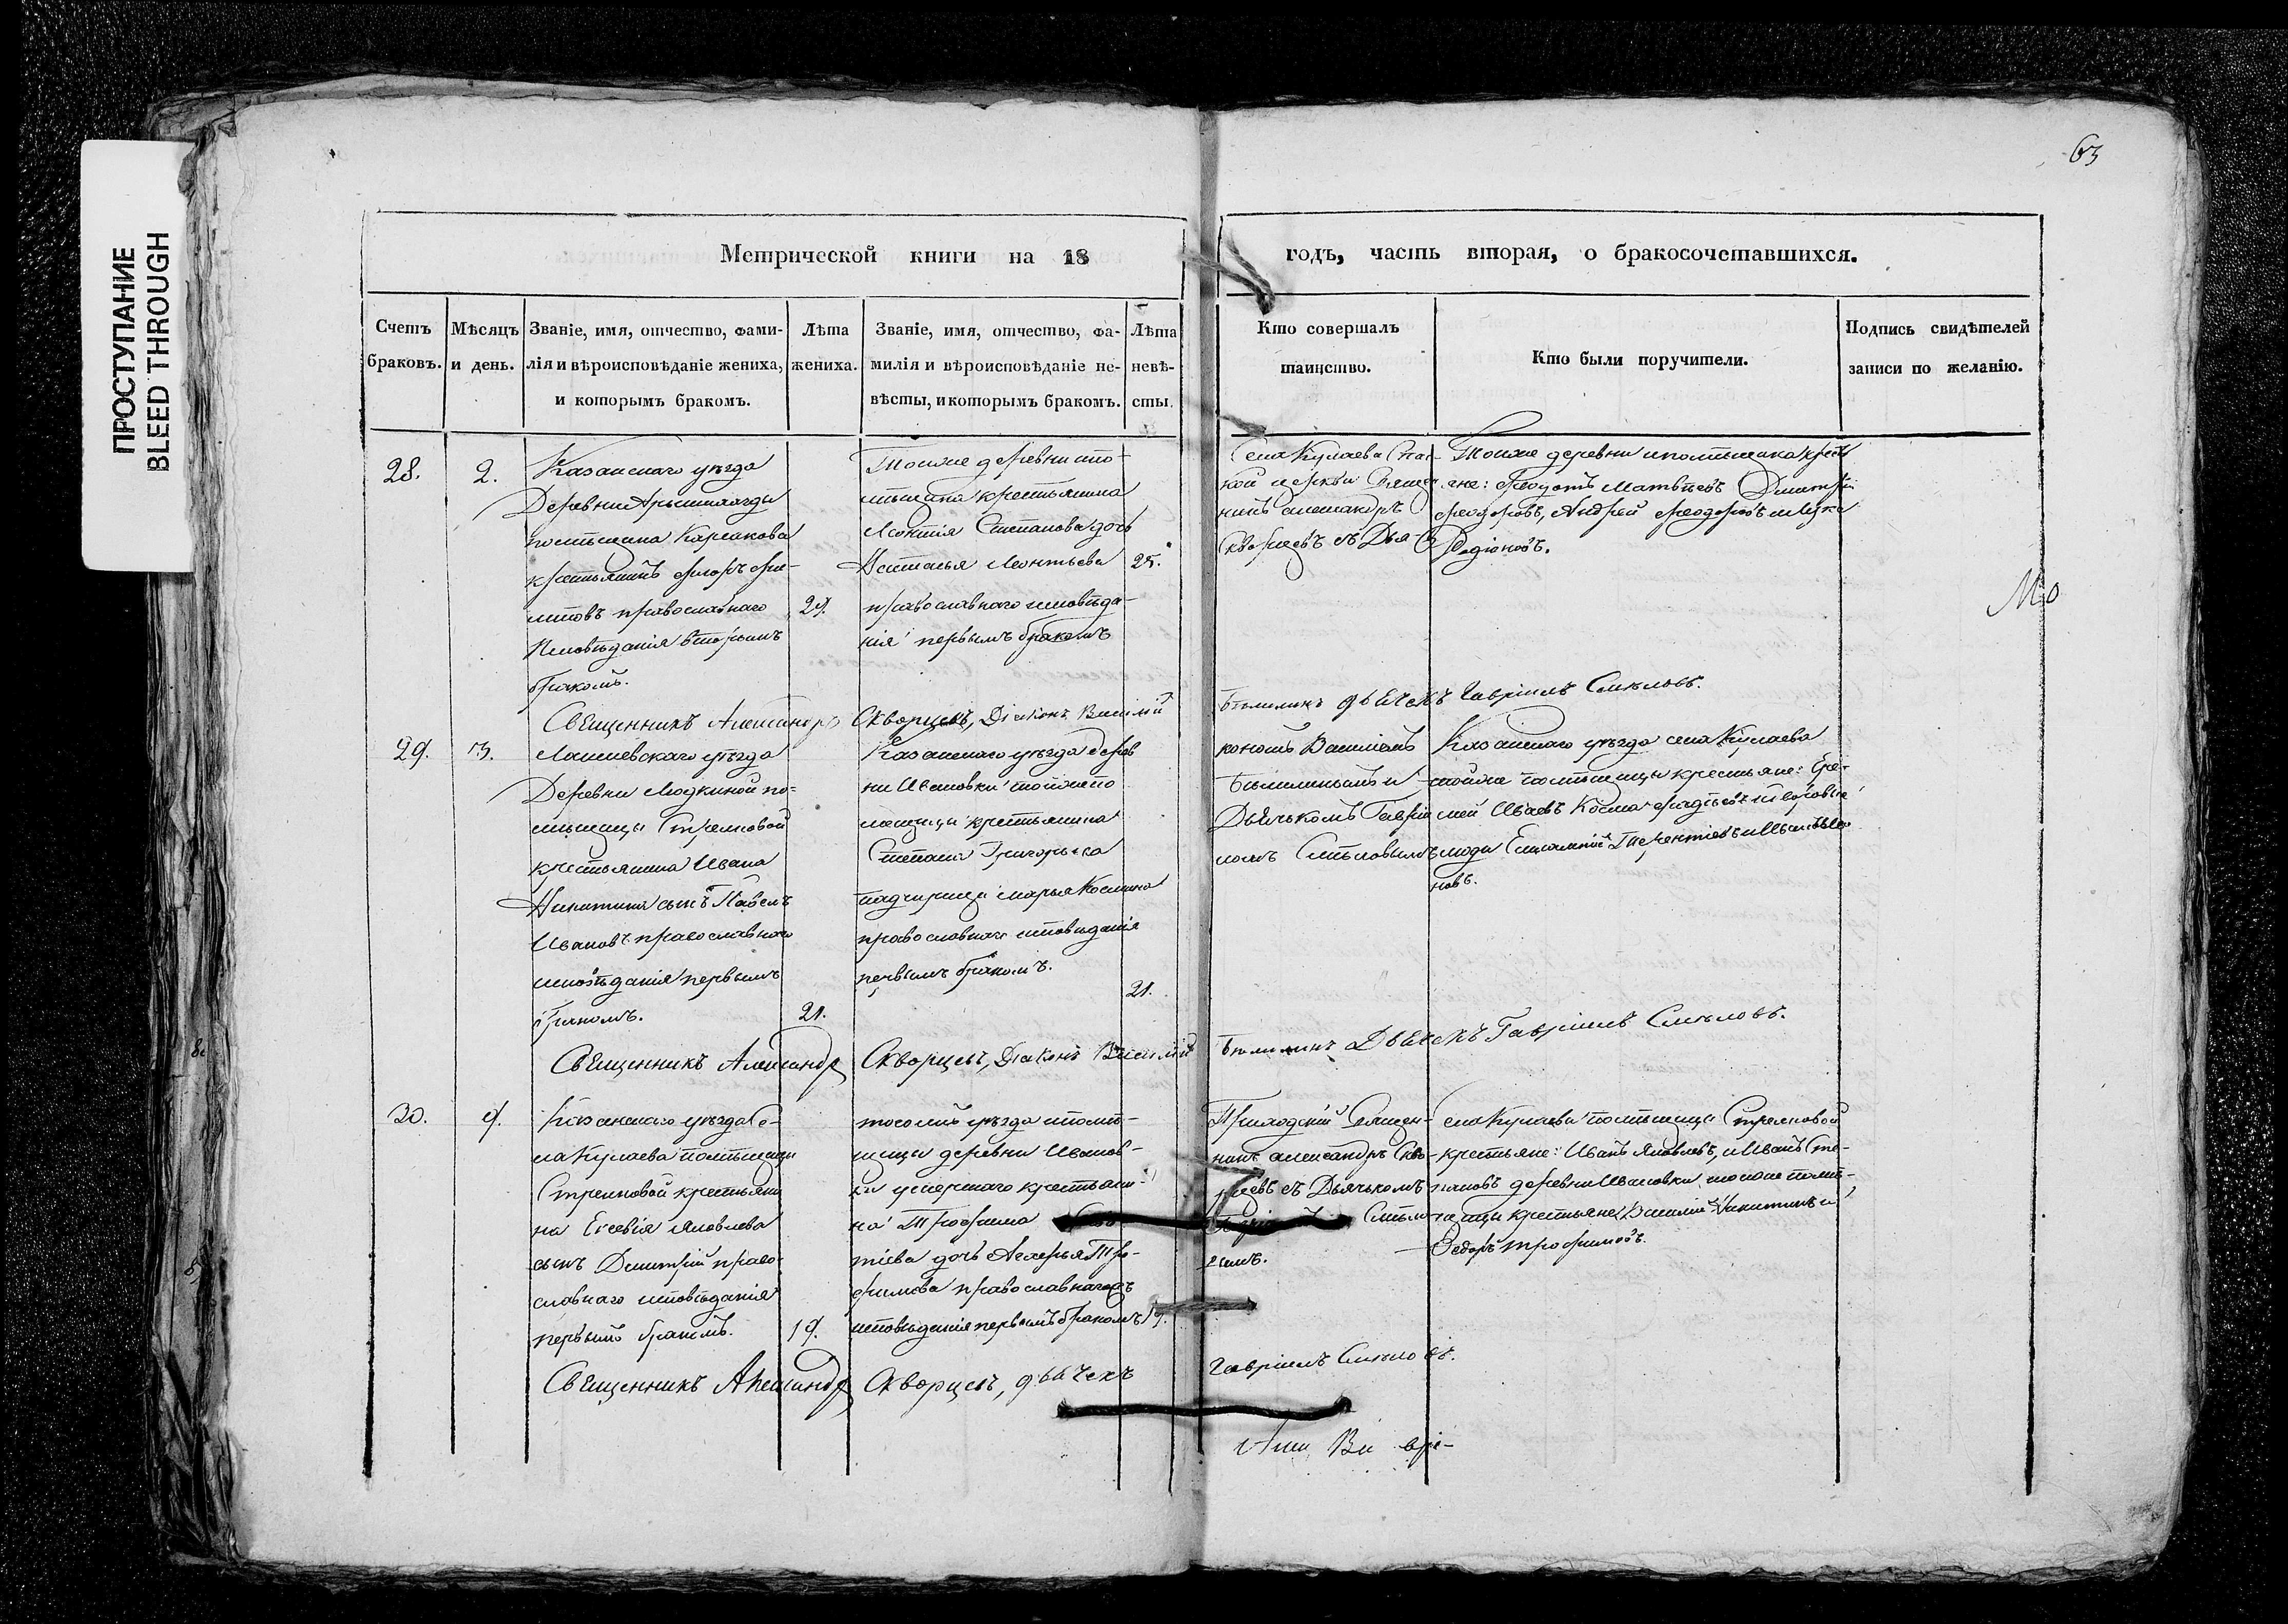 ПРОСТУПАНИЕ
BLEED THROUGH
63
Метрической книги на 18
годъ, часть вторая, о бракосочетавшихся.
Счетъ
браковъ.
Мѣсяцъ
и день.
Званіе, имя, отчество, фами-
лія и вѣроисповѣданіе жениха,
и которымъ бракомъ.
Лѣта
жениха.
Званіе, имя, отчество, фа-
милія и вѣроисповѣданіе не-
вѣсты, и которымъ бракомъ.
Лѣта
невѣ-
сты.
Кто совершалъ
таинство.
Кто были поручители.
Подпись свидѣтелей
записи по желанію.
28.
2.
Казанскаго уѣзда
Деревни
помѣщика
крестьянинъ
православнаго
Исповѣданія вторымъ
бракомъ.
29.
Тойже деревни и по-
мѣщика крестьянина
Леонтія Степанова дочь
Наталья Леонтьева
православнаго исповѣда-
нія первымъ бракомъ
25.
Села Кулаева Спас-
кой церкви Священ-
никъ Александръ
Скворцевъ съ Дья-
Тойже деревни и помѣщика крестья
яне: Федотъ Матвѣевъ Димитрій
Феодоровъ, Андрей Феодоровъ и Лука
Родіоновъ.
Священникъ Александръ Скворцевъ, Діаконъ Василій
дьячекъ Гавріилъ Смѣловъ.
29.
3.
Лаишевскаго уѣзда
Деревни по-
мѣщицы Стрелковой
крестьянина Ивана
Никитина сынъ Павелъ
Ивановъ православнаго
исповѣданія первымъ
бракомъ.
21.
Казанскаго уѣзда дерев
ни Ивановки тойже по
мѣщицы крестьянина
Степана Григорьева
падчерица Марья Космина
православнаго исповѣданія
первымъ бракомъ.
21.
кономъ Василіемъ
и
Дьячькомъ Гавріи
ломъ Смѣловымъ
Казанскаго уѣзда села Кулаева
тойже помѣщицы крестьяне: Ере-
мей Косма
люди Терентіевъ
новъ.
Священникъ Александръ Скворцевъ, Діаконъ Василій
Дьячекъ Гавріилъ Смѣловъ.
30.
9.
Казанскаго уѣзда Се-
ла Кулаева помѣщицы
Стрелковой крестьяни
на Евсевія Яковлева
сынъ Димитрій право-
славнаго исповѣданія
первымъ бракомъ.
19.
тогоже уѣзда и помѣ-
щицы деревни Иванов-
ки умершаго крестьяни-
на Трофима
тіева дочь Тро-
фимова православнаго
исповѣданія первымъ бракомъ
19.
Приходскій Священ-
никъ Александръ Скво-
рцевъ съ Дьячькомъ
Смѣло-
вымъ.
Села Кулаева помѣщицы Стрелковой
крестьяне: Иванъ Яковлевъ, и Иванъ Сте-
пановъ деревни Ивановки тойже помѣ-
щицы крестьяне Василій Никитинъ и
Трофимовъ.
Священникъ Александръ Скворцевъ, дьячекъ
Гавріилъ Смѣловъ.